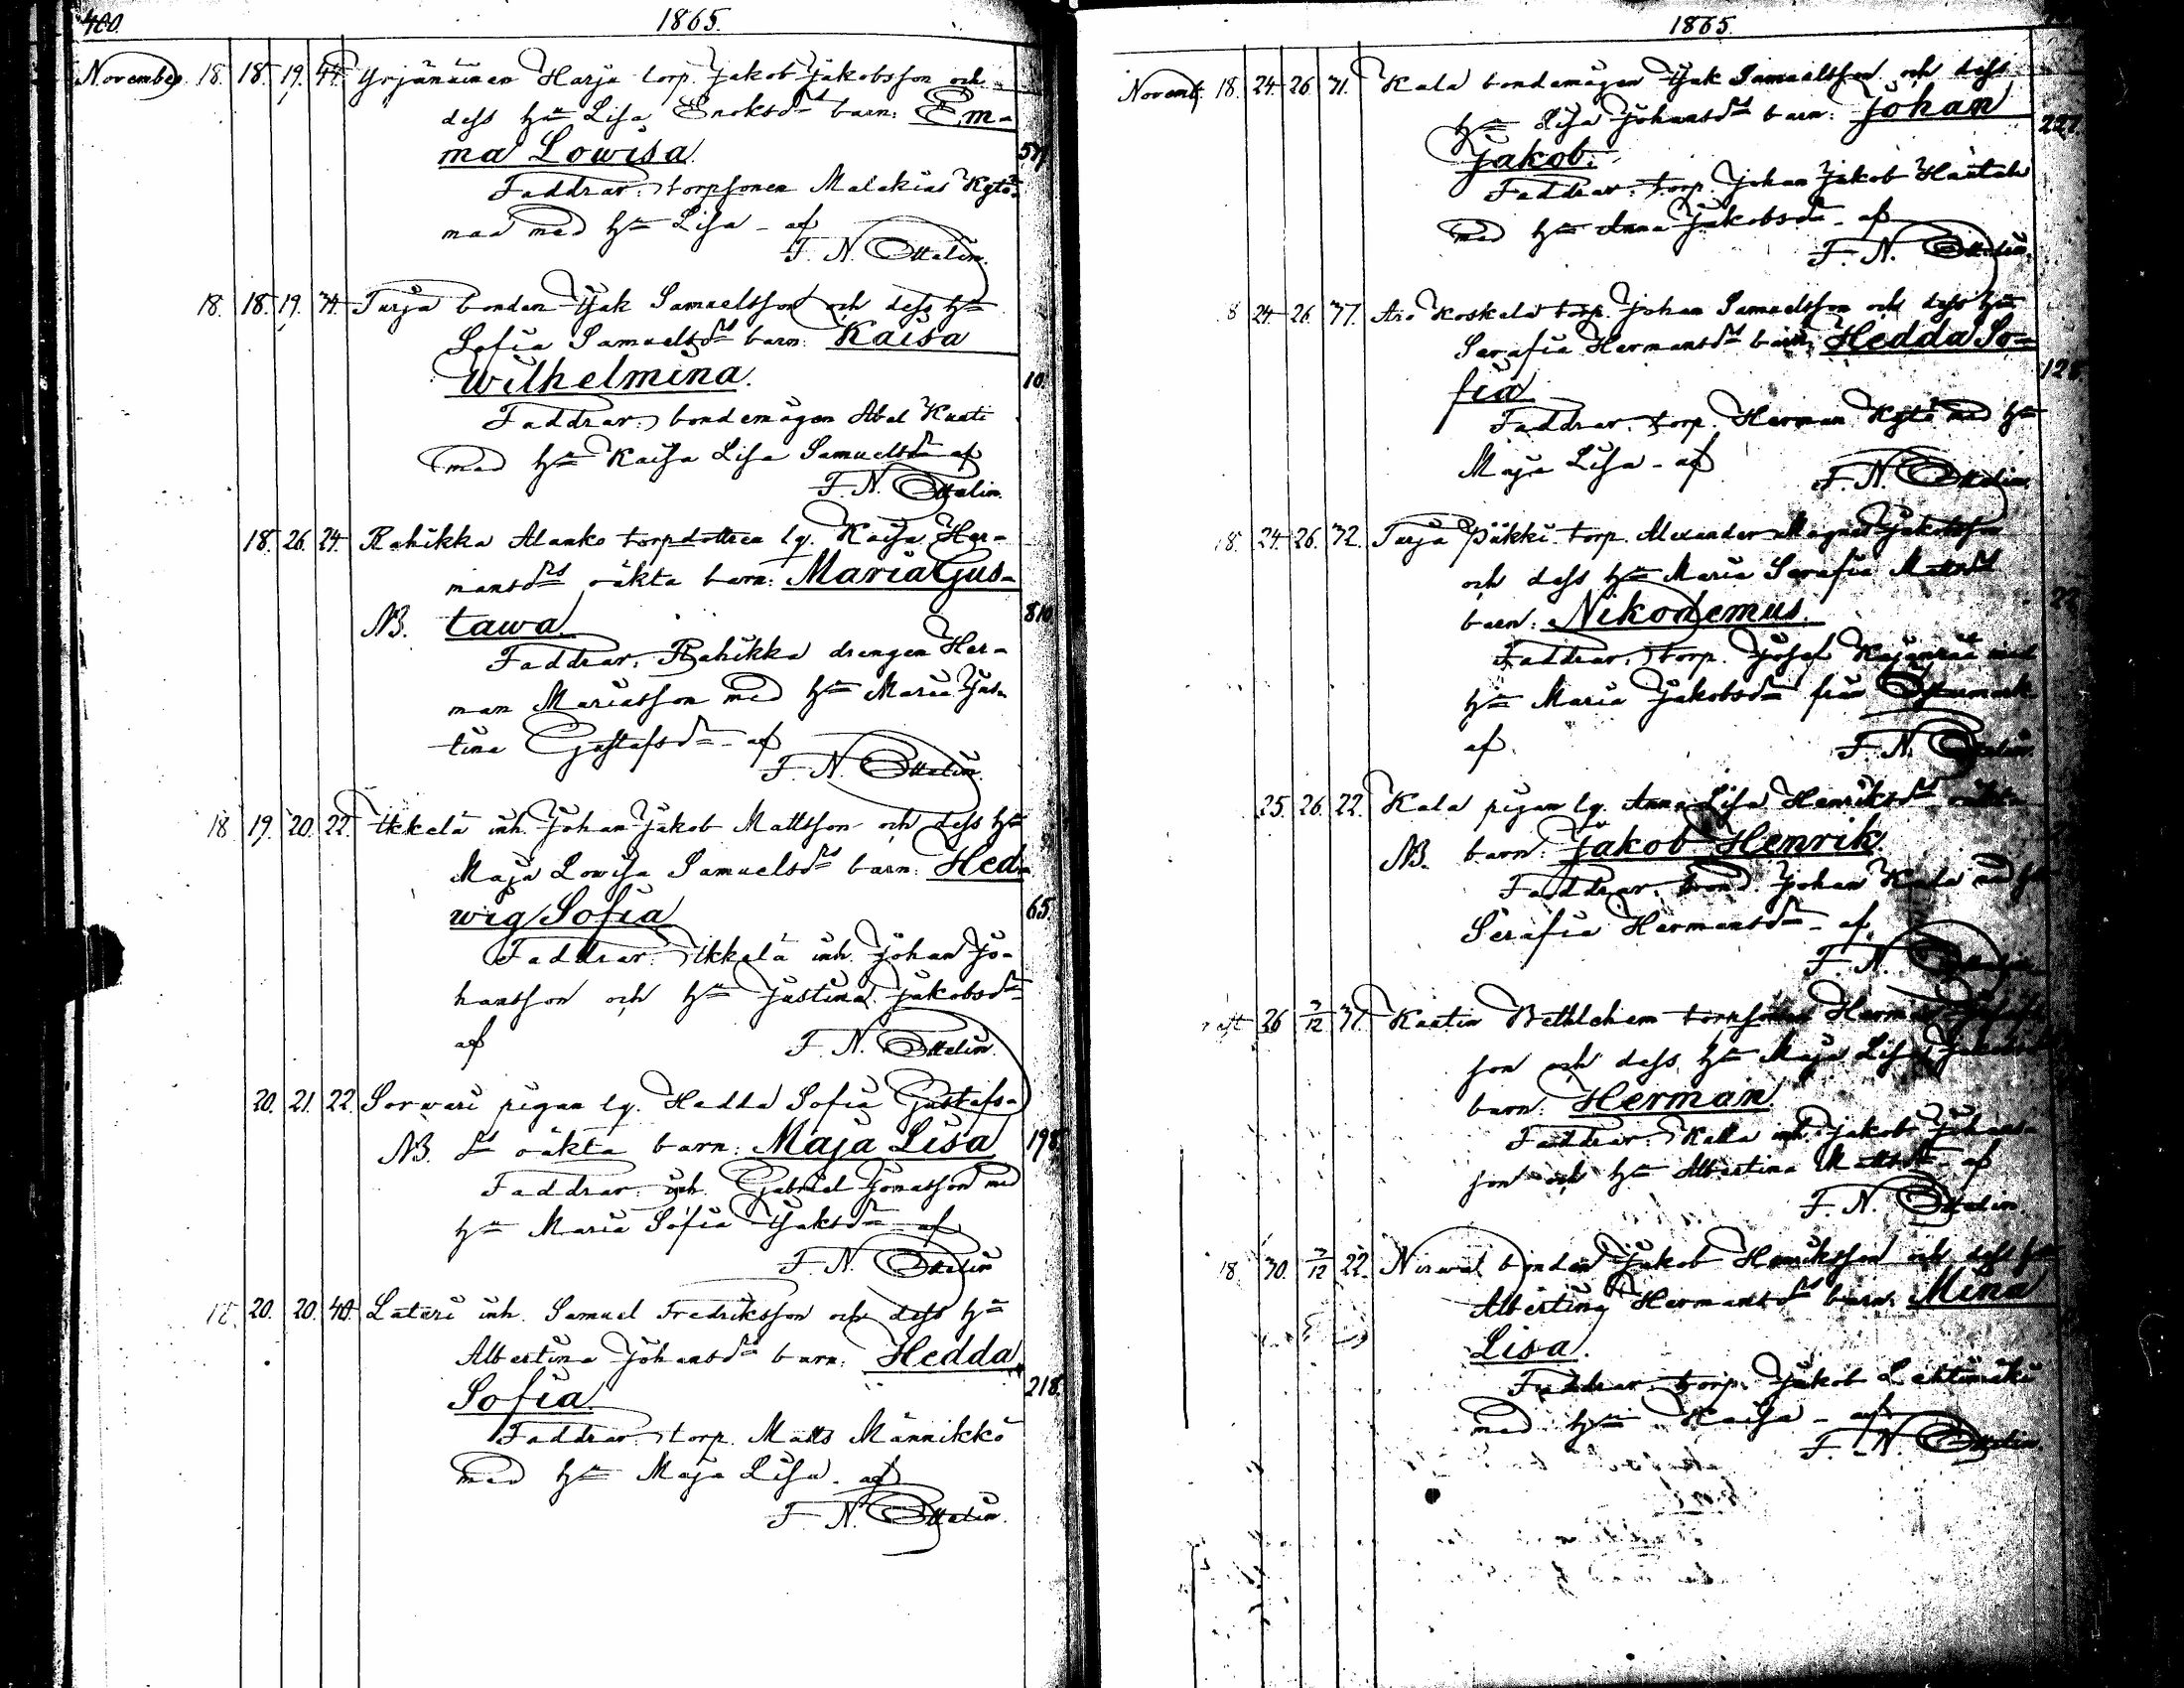 400.
1865.
November. 18. 18. 19. 44. Yrjänäinen Harju torp. Jakob Jakobsson och
dess hu Lisa Enoksdrs barn: Em-
ma Lowisa.
Faddrar: torpsonen Malakias Kytö-
maa med hu Lisa - af
F. N. Ottelin.
18. 18. 19. 34. Turja bonden Isak Samuelsson och dess hu
Sofia Samuelsdrs barn: Kaisa
Wilhelmina. 10.
Faddrar: bondemågen Abel Knuti
med hu Kaisa Lisa Samuelsdr af
F. N. Ottelin.
18. 26. 24. Rahikka Alanko torpdottren lg. Kaisa Her-
mansdrs oäkta barn: Maria Gus-
NB. tawa. 810
Faddrar: Rahikka drengen Her-
man Mariasson med hu Maria Jus-
tina Gustafsdr - af
F. N. Ottelin.
18 19. 20. 22. Ikkelä inh. Johan Jakob Mattsson och dess hu
Maja Lowisa Samuelsdrs barn: Hed-
wig Sofia 65.
Faddrar: Ikkelä inh. Johan Jo-
hansson och hu Justina Jakobsdr
af F. N. Ottelin.
20. 21. 22. Sorwari pigan lg. Hedda Sofia Gustafs-
NB. drs oäkta barn: Maja Lisa 198
Faddrar: inh. Gabriel Jonasson med
hu Maria Sofia Isaksdr - af
F. N. Ottelin
18. 20. 20. 40. Lateri inh. Samuel Fredriksson och dess hu
Albertina Johansdrs barn: Hedda
Sofia. 218.
Faddrar: torp. Matts Männikkö
med hu Maja Lisa - af
F. N. Ottelin.
1865.
Novemb. 18. 24. 26. 31. Kala bondemågen Isak Samuelsson och dess
hu Lisa Johansdrs barn: Johan
Jakob. 227
Faddrar: torp. Johan Jakob Hautala
med hu Anna Jakobsdr - af
F. N. Ottelin.
8 24. 26. 37. Aro Koskela torp. Johan Samuelsson och dess hu
Serafia Hermansdrs barn: Hedda So-
fia 128
Faddrar: torp. Herman Kytö med hu
Maja Lisa - af
F. N. Ottelin.
18. 24. 26. 32. Turja Päkki torp. Alexander Magnus Jakobsson
och dess hu Maria Serafia Mattsdrs
barn: Nikodemus. 22
Faddrar: torp. Josef med
hu Maria Jakobsdr från
af. F. N. Ottelin
25. 26. 22. Kala pigan lg. Anna Lisa Henriksdrs oäkta
NB. barn: Jakob Henrik
Faddrar: bond. Johan Kala med hu
Serafia Hermansdr - af
F. N. Ottelin
26 3/12 31. Kaatin Bethlehem torpsonen Herman
son och dess hu Maja Lisa
barn: Herman
Faddrar: Kalla inh. Jakob Johans-
son och hu Albertina Mattsdr - af
F. N. Ottelin.
18. 30. 3/12 22. Nirwa bonden Jakob Henriksson och dess hu
Albertina Hermansdrs barn: Mina
Lisa.
Faddrar: torp. Jakob Lehtimäki
med hu Kaisa - af
F. N. Ottelin